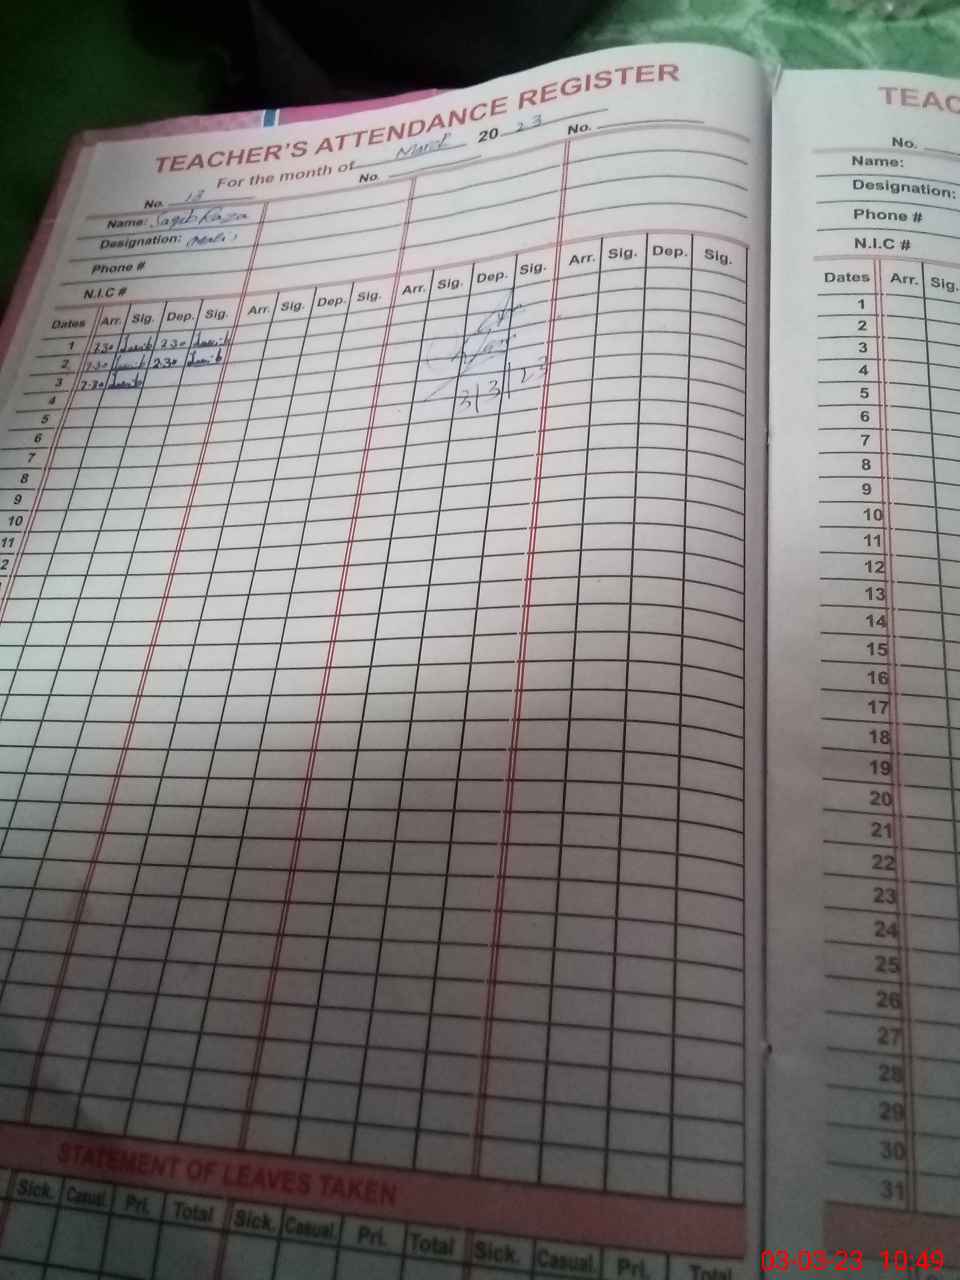 TEACHER'S ATTENDANCE REGISTER
For the month of March 2023
No. 13 No. No.
Name: Saqib Raza
Designation:
Phone #
N.I.C #
Dates Arr. Sig. Dep. Sig. Arr. Sig. Dep. Sig. Arr. Sig. Dep. Sig. Arr. Sig. Dep. Sig.
1 7.30 Saqib 2.30 Saqib
2 7.30 Saqib 2.30 Saqib
3 7.30 Saqib
3/3/23
4
5
6
7
8
9
10
11
2
STATEMENT OF LEAVES TAKEN
Sick. Casual. Pri. Total Sick. Casual. Pri. Total Sick. Casual. Pri. Total
TEAC
No.
Name:
Designation:
Phone #
N.I.C #
Dates Arr. Sig.
1
2
3
4
5
6
7
8
9
10
11
12
13
14
15
16
17
18
19
20
21
22
23
24
25
26
27
28
29
30
31
03-03-23 10:49